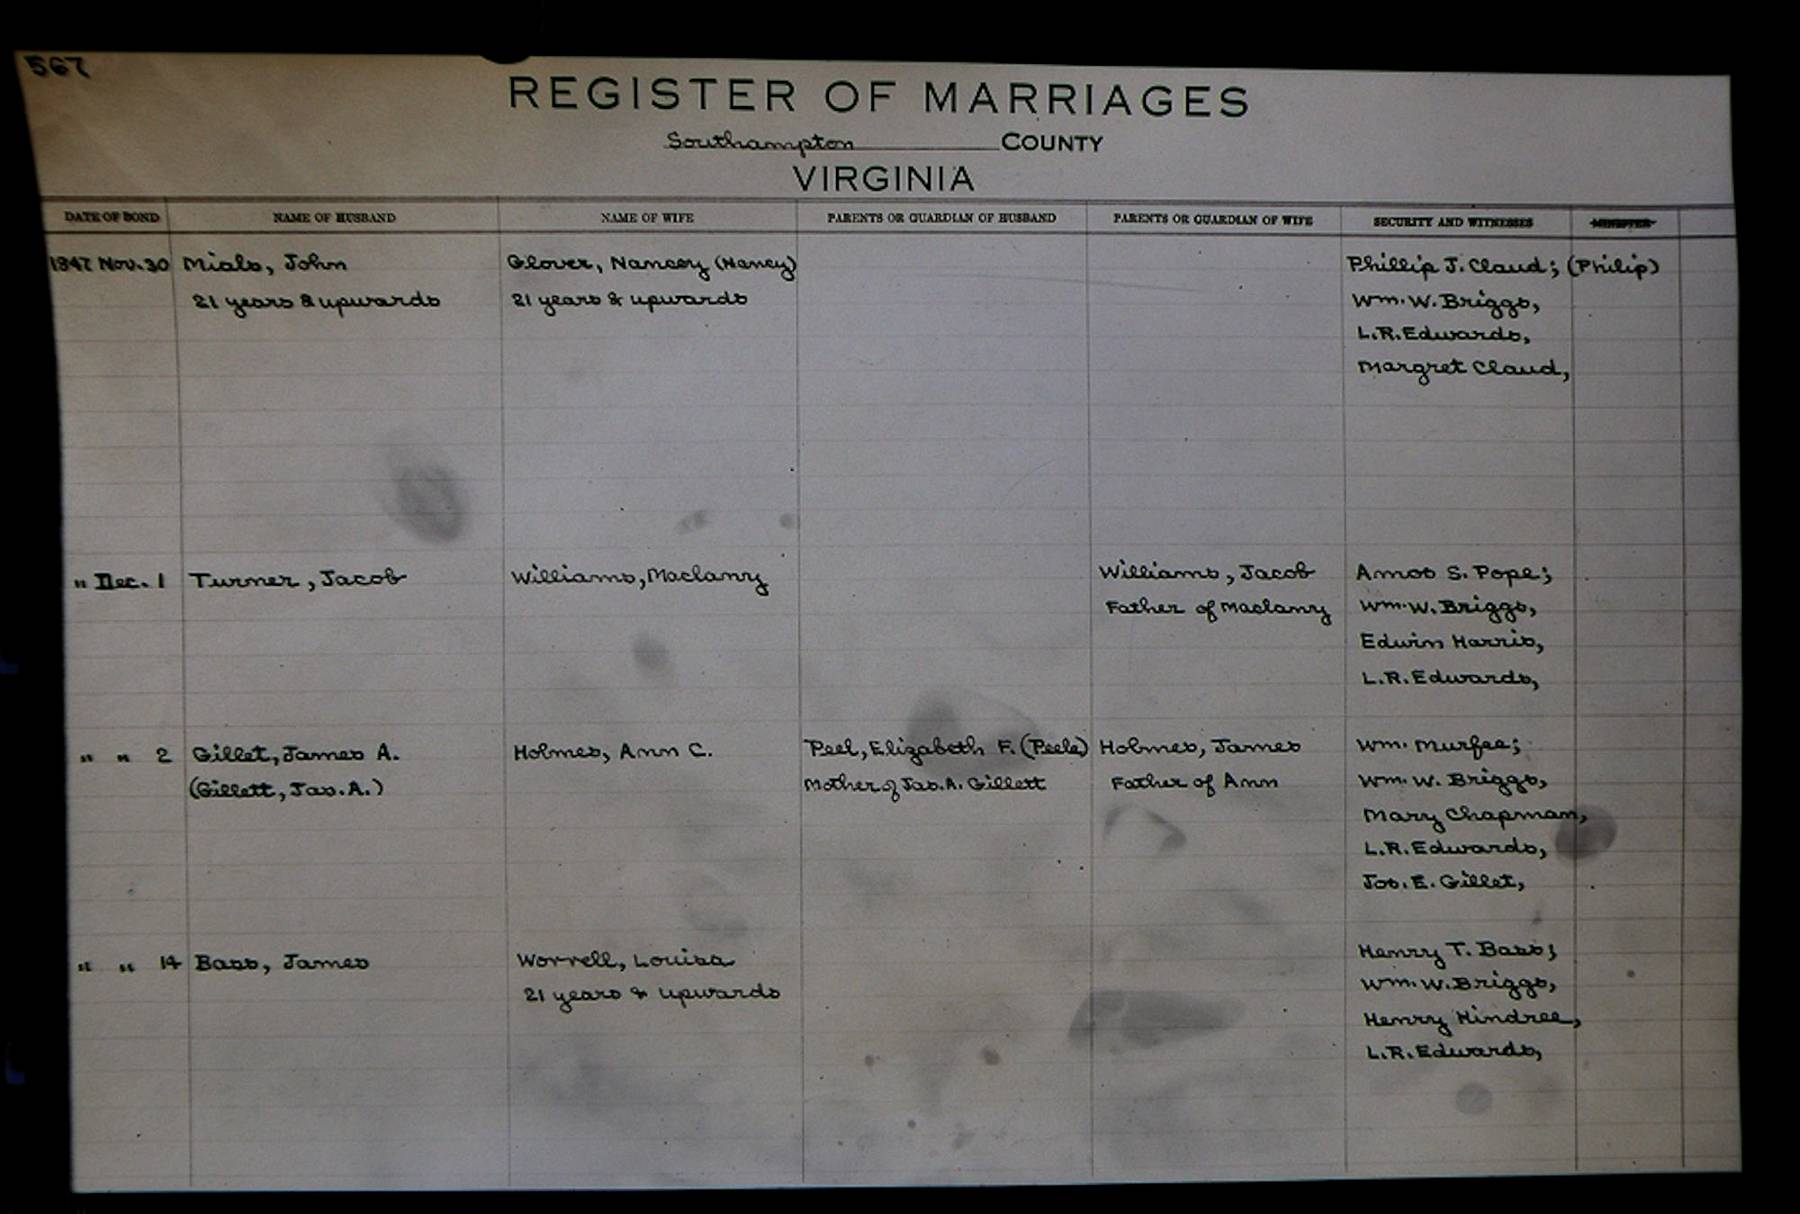 567
REGISTER OF MARRIAGES
Southampton COUNTY
VIRGINIA
DATE OF BOND NAME OF HUSBAND NAME OF WIFE PARENTS OR GUARDIAN OF HUSBAND PARENTS OR GUARDIAN OF WIFE SECURITY AND WITNESSES MINISTER
1847 Nov. 30 Mials, John Glover, Nancey (Nancy) Phillip J. Claud; (Philip)
21 years & upwards 21 years & upwards Wm. W. Briggs,
L.R. Edwards,
Margret Claud,
" Dec. 1 Turner, Jacob Williams, Maclanry Williams, Jacob Amos S. Pope;
Father of Maclanry Wm. W. Briggs,
Edwin Harris,
L.R. Edwards,
" " 2 Gillet, James A. Holmes, Ann C. Peel, Elizabeth F. (Peele) Holmes, James Wm. Murfee;
(Gillett, Jas. A.) Mother of Jas. A. Gillett Father of Ann Wm. W. Briggs,
Mary Chapman,
L.R. Edwards,
Jos. E. Gillet,
" " 14 Bass, James Worrell, Louisa Henry T. Bass;
21 years & upwards Wm. W. Briggs,
Henry Hindree,
L.R. Edwards,